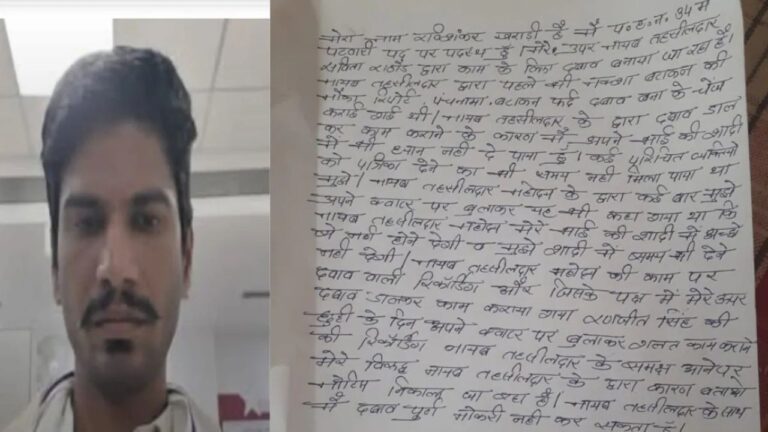 मेरा नाम रविशंकर खराडी है मै प.ह.न. 34 मे
पटवारी पद पर पदस्थ हूं। मेरे उपर नायब तहसीलदार
सविता राठौड द्वारा काम के लिए दबाव बनाया जा रहा है।
नायब तहसीलदार द्वारा पहले भी नक्शा बटाकन की
मौका रिपोर्ट, पंचनामा, बटाकन फर्द दबाव बना के चेंज
कराई गई थी। नायब तहसीलदार के द्वारा दबाव डाल
कर काम कराने के कारण मै अपने भाई की शादी
मे भी ध्यान नही दे पाया हूं। कई परिचित व्यक्तियो
को पत्रिका देने का भी समय नही मिला पाया था
मुझे। नायब तहसीलदार महोदय के द्वारा कई बार मुझे
अपने क्वाटर पर बुलाकर यह भी कहा गया था कि
नायब तहसीलदार महोदय मेरे भाई की शादी भी अच्छे
से नही होने देगी व मुझे शादी मे समय भी देने
नही देगी। नायब तहसीलदार महोदय की काम पर
दबाव वाली रिकॉर्डिंग और जिसके पक्ष में मेरे उपर
दबाव डालकर काम कराया गया रणजीत सिंह की
छुट्टी के दिन अपने क्वाटर पर बुलाकर गलत काम कराने
की रिकॉर्डिंग नायब तहसीलदार के समक्ष आने पर
मेरे विरूद्ध नायब तहसीलदार के द्वारा कारण बताओ
नोटिस निकाला जा रहा है। नायब तहसीलदार के साथ
मै दबाव पूर्ण नौकरी नही कर सकता हूं।